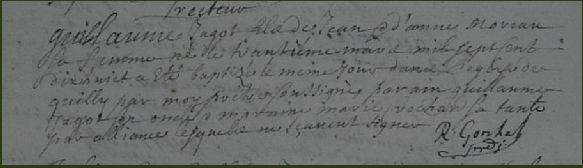 recteur
guillaume Jagot fils de Jean & d'anne Moreau
sa femme né le trantieme mars mil sept sent
dixhuict a eté baptisé le meme jour dans l'eglise de
quilly par moy prêtre soussigné parain guillaume
Jagot son oncle maraine marie sa tante
par alliance lesquels ne sçavent signer R. Gorhel
prêtre